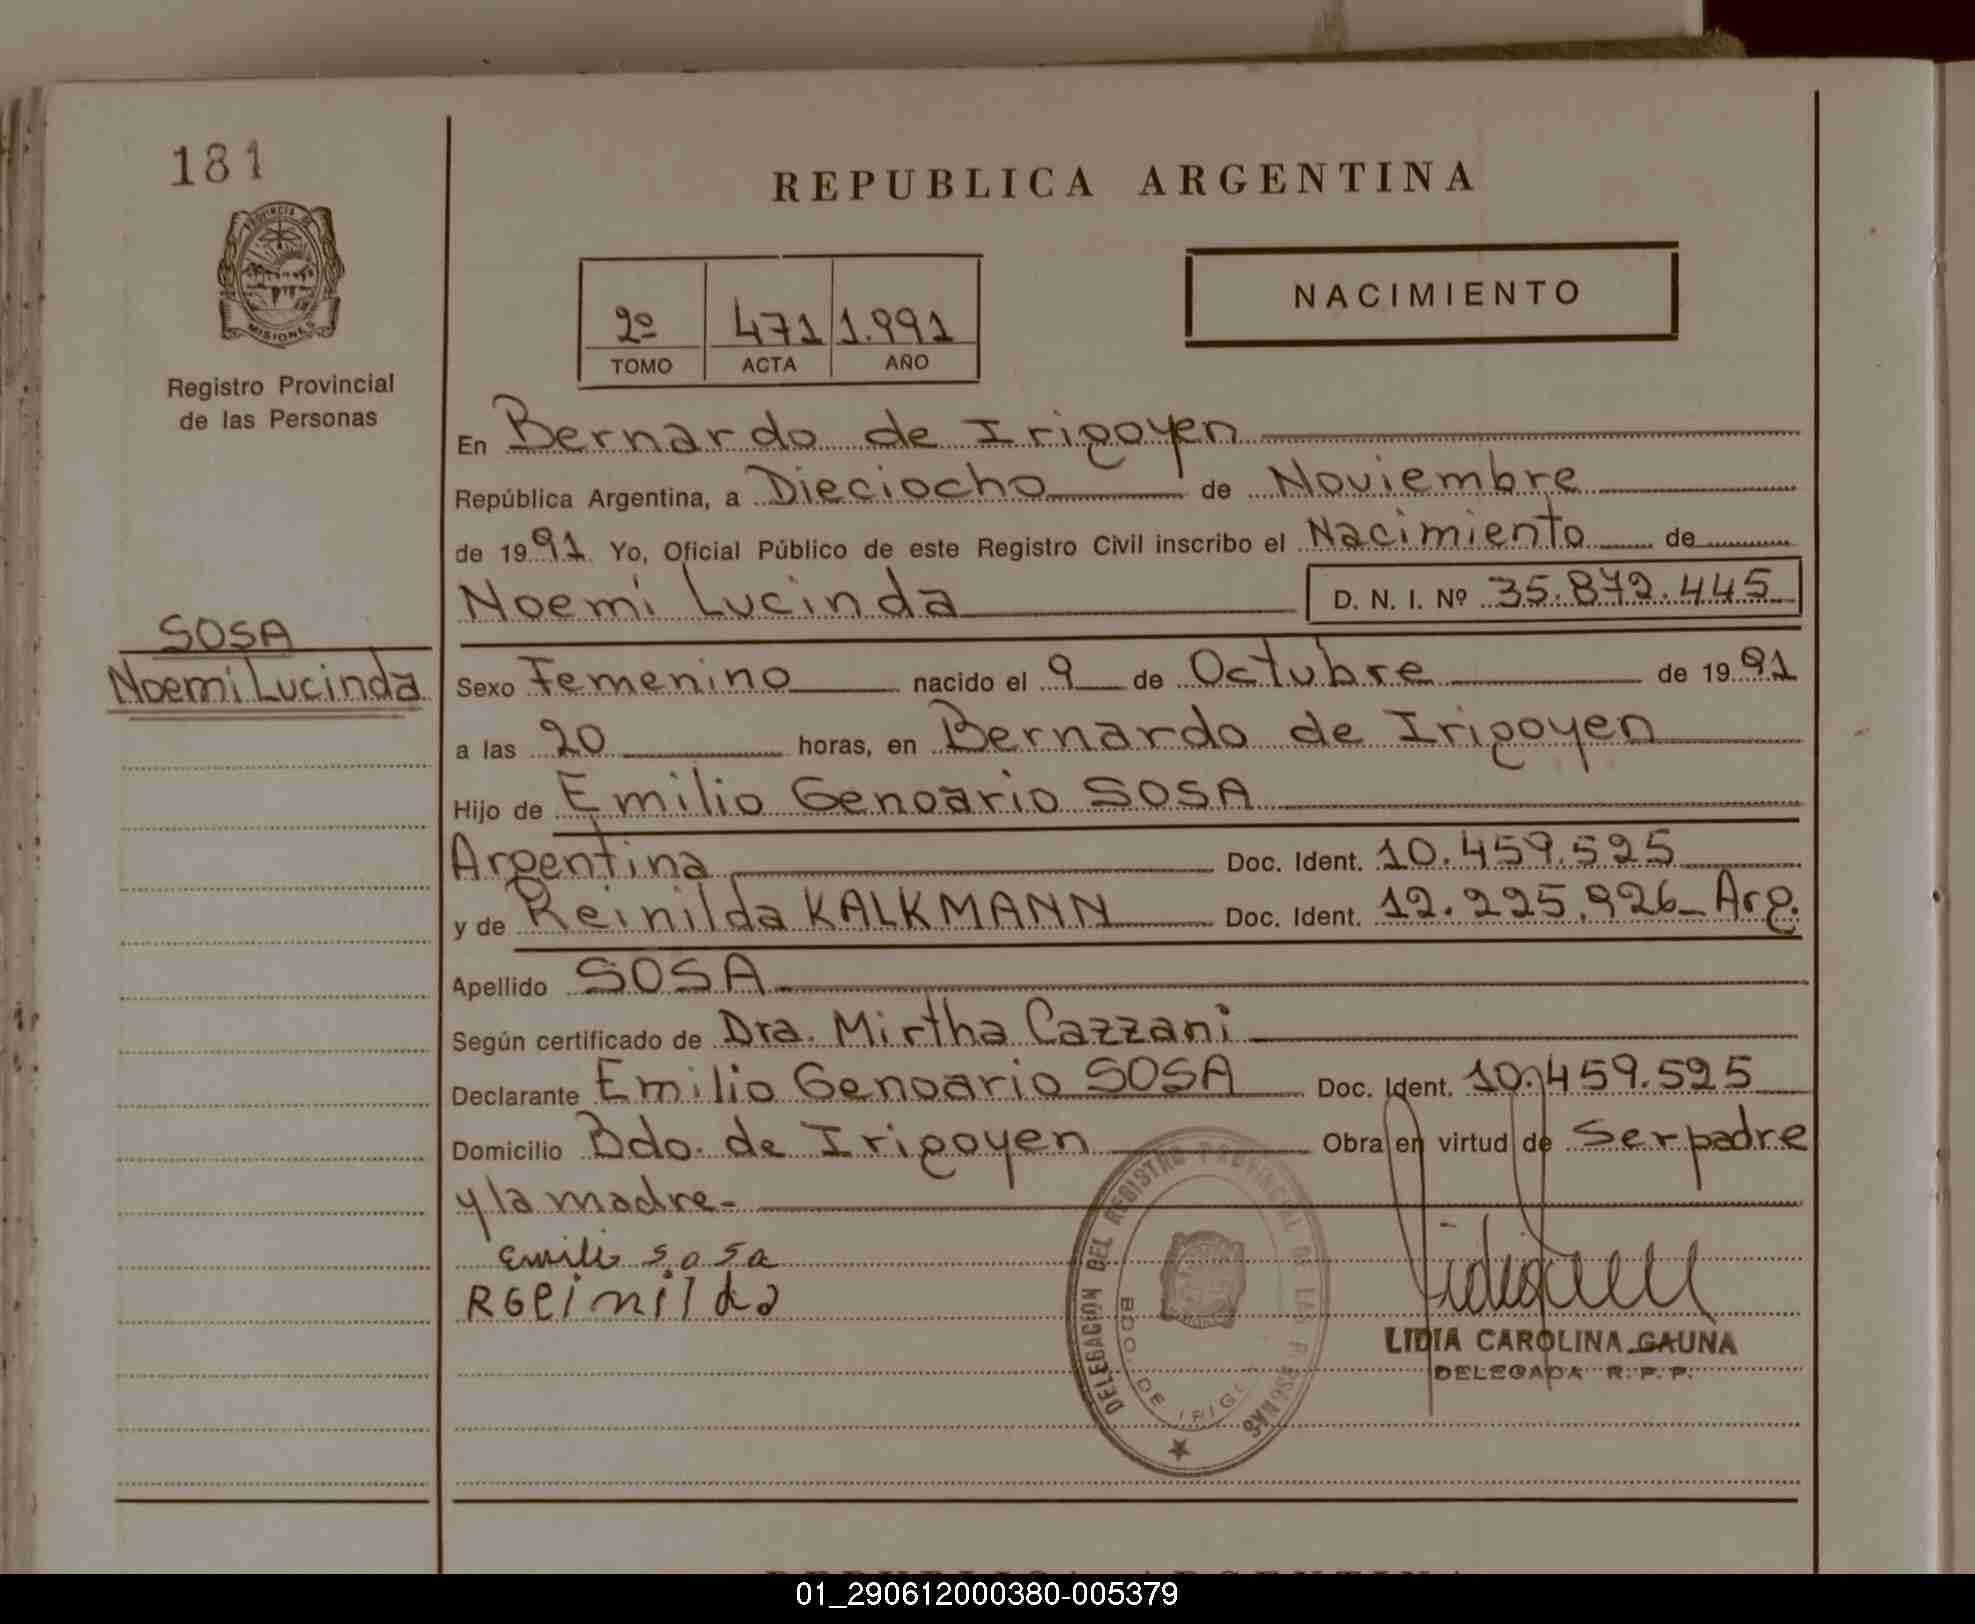 181
REPUBLICA ARGENTINA
PROVINCIA DE
MISIONES
2º 471 1.991
TOMO ACTA AÑO
NACIMIENTO
Registro Provincial
de las Personas
En Bernardo de Irigoyen
República Argentina, a Dieciocho de Noviembre
de 1991 Yo, Oficial Público de este Registro Civil inscribo el Nacimiento de
Noemi Lucinda D. N. I. Nº 35.872.445
SOSA
Noemi Lucinda
Sexo Femenino nacido el 9 de Octubre de 1991
a las 20 horas, en Bernardo de Irigoyen
Hijo de Emilio Genoario SOSA
Argentina Doc. Ident. 10.459.525
y de Reinilda KALKMANN Doc. Ident. 12.225.926_ Arg.
Apellido SOSA
Según certificado de Dra. Mirtha Cazzani
Declarante Emilio Genoario SOSA Doc. Ident. 10.459.525
Domicilio Bdo. de Irigoyen Obra en virtud de Ser padre
y la madre-
Emili sosa
RGeinilda
DELEGACIÓN DEL REGISTRO PROVINCIAL DE LAS PERSONAS
BDO. DE IRIGO
LIDIA CAROLINA GAUNA
DELEGADA R. P. P.
REPUBLICA ARGENTINA
01_290612000380-005379